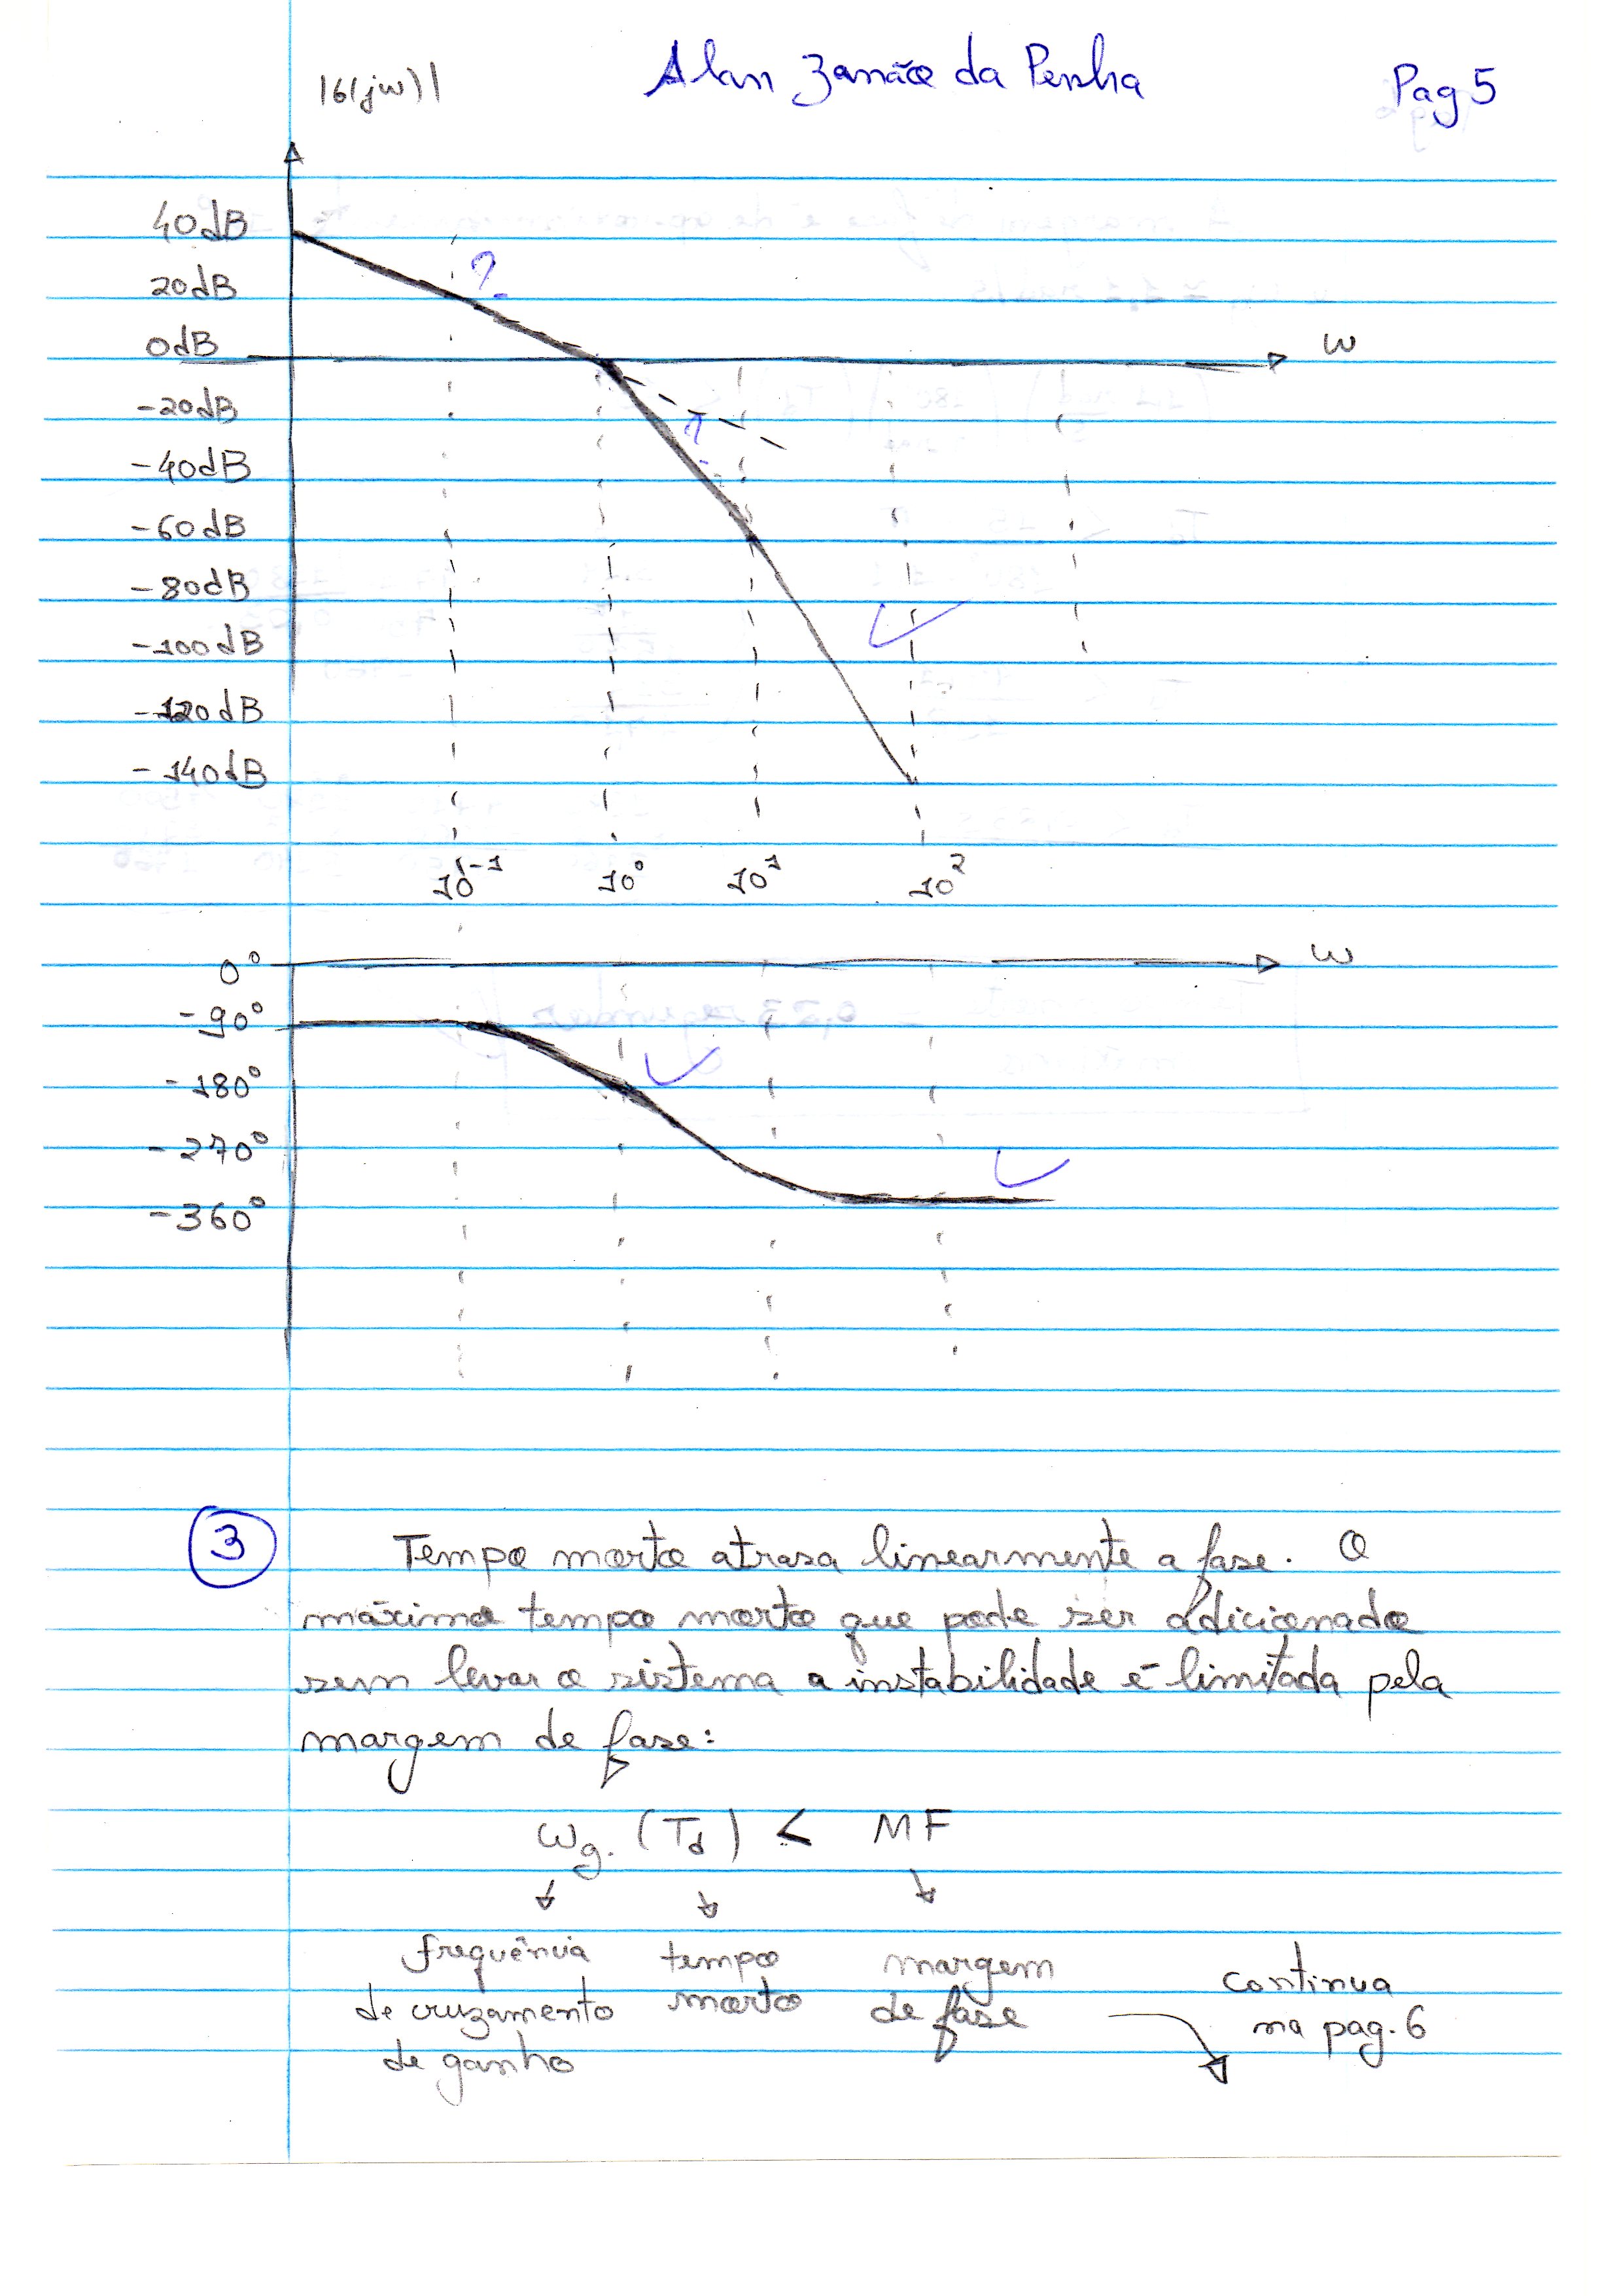 |G(jw)|
Alan Zanão da Penha
Pag 5
40dB
20dB
0dB
w
-20dB
-40dB
-60dB
-80dB
-100dB
-120dB
-140dB
?
?
10⁻¹ 10⁰ 10¹ 10²
0° w
-90°
-180°
-270°
-360°
3 Tempo morto atrasa linearmente a fase. O
máximo tempo morto que pode ser adicionado
sem levar o sistema a instabilidade é limitada pela
margem de fase:
Wg. (Td) < MF
frequência tempo margem
de cruzamento morto de fase
de ganho
continua
na pag. 6